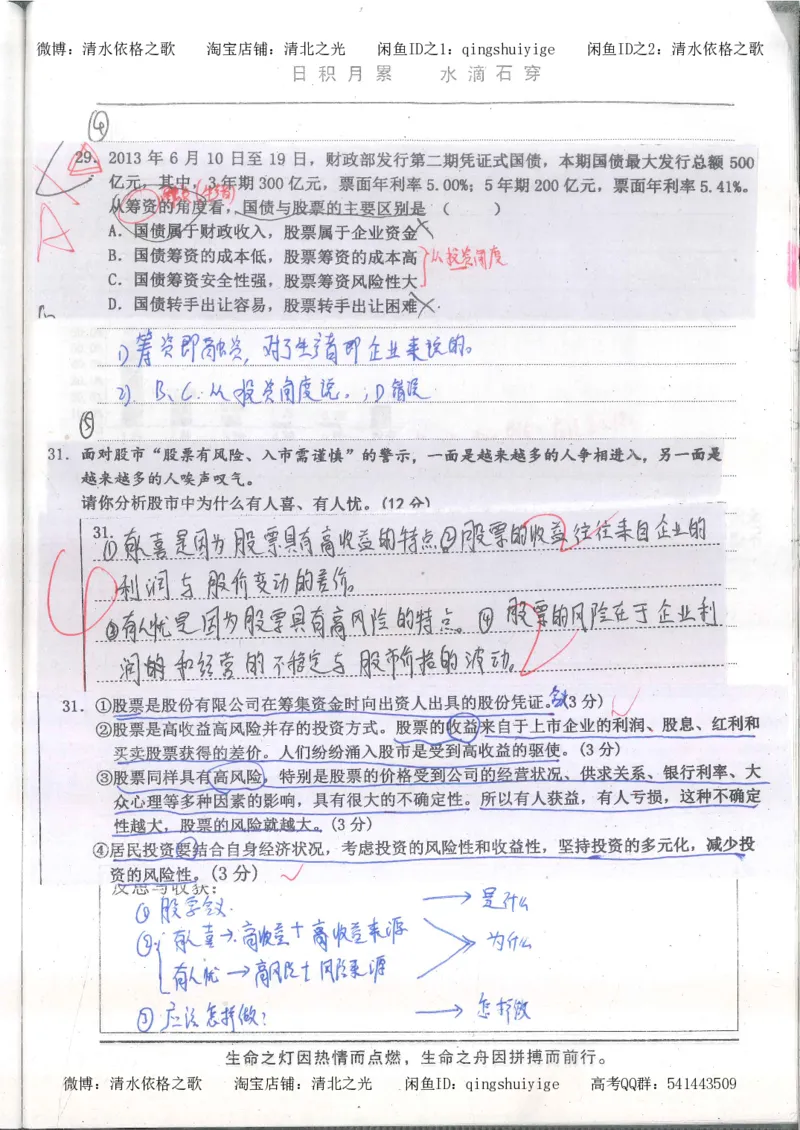 微博：清水依格之歌 淘宝店铺：清北之光 闲鱼ID之1：qingshuiyige 闲鱼ID之2：清水依格之歌
日积月累 水滴石穿
④
29. 2013 年 6 月 10 日至 19 日，财政部发行第二期凭证式国债，本期国债最大发行总额 500
亿元，其中，3 年期 300 亿元，票面年利率 5.00%；5 年期 200 亿元，票面年利率 5.41%。
从筹资的角度看，国债与股票的主要区别是（ ）
A
A．国债属于财政收入，股票属于企业资金
B．国债筹资的成本低，股票筹资的成本高
从投资角度
C．国债筹资安全性强，股票筹资风险性大
D．国债转手出让容易，股票转手出让困难
1) 筹资即融资，对于生产者即企业来说的。
2). B、C.从投资角度说.；D错误
⑤
31．面对股市“股票有风险、入市需谨慎”的警示，一面是越来越多的人争相进入，另一面是
越来越多的人唉声叹气。
请你分析股市中为什么有人喜、有人忧。(12 分)
31.
①有人喜是因为股票具有高收益的特点②股票的收益往往来自企业的
利润与股价变动的差价。
③有人忧是因为股票具有高风险的特点。④股票的风险在于企业利
润的和经营的不稳定与股市价格的波动。
31．①股票是股份有限公司在筹集资金时向出资人出具的股份凭证。(3 分)
②股票是高收益高风险并存的投资方式。股票的收益来自于上市企业的利润、股息、红利和
买卖股票获得的差价。人们纷纷涌入股市是受到高收益的驱使。(3 分)
③股票同样具有高风险，特别是股票的价格受到公司的经营状况、供求关系、银行利率、大
众心理等多种因素的影响，具有很大的不确定性。所以有人获益，有人亏损，这种不确定
性越大，股票的风险就越大。(3 分)
④居民投资要结合自身经济状况，考虑投资的风险性和收益性，坚持投资的多元化，减少投
资的风险性。(3 分)
反思与收获：
① 股票含义. → 是什么
② 有人喜→高收益+高收益来源 → 为什么
有人忧→高风险+风险来源
③ 应该怎样做？ → 怎样做
生命之灯因热情而点燃，生命之舟因拼搏而前行。
微博：清水依格之歌 淘宝店铺：清北之光 闲鱼ID：qingshuiyige 高考QQ群：541443509